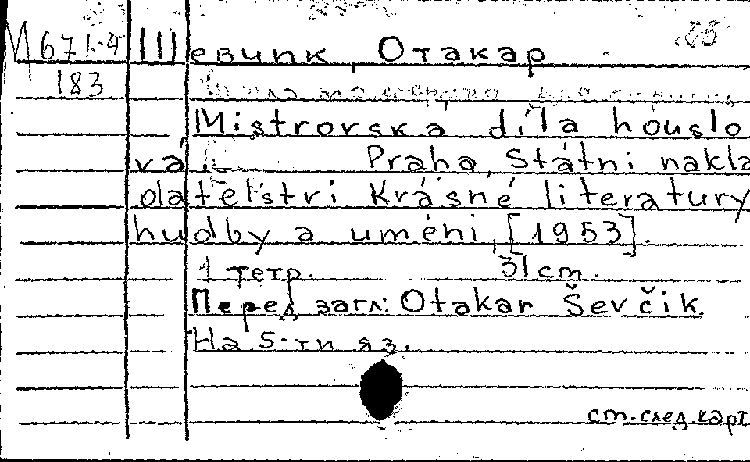 М 671-4 Шевчик, Отакар
183
Mistrovská díla houslo
vá. Praha, Státni nakla
datelstvi Krásné literatury
hudby a uméni, [1953].
1 тетр. 31 cm.
Перед загл: Otakar Ševčik.
На 5-ти яз.
см. след. карт